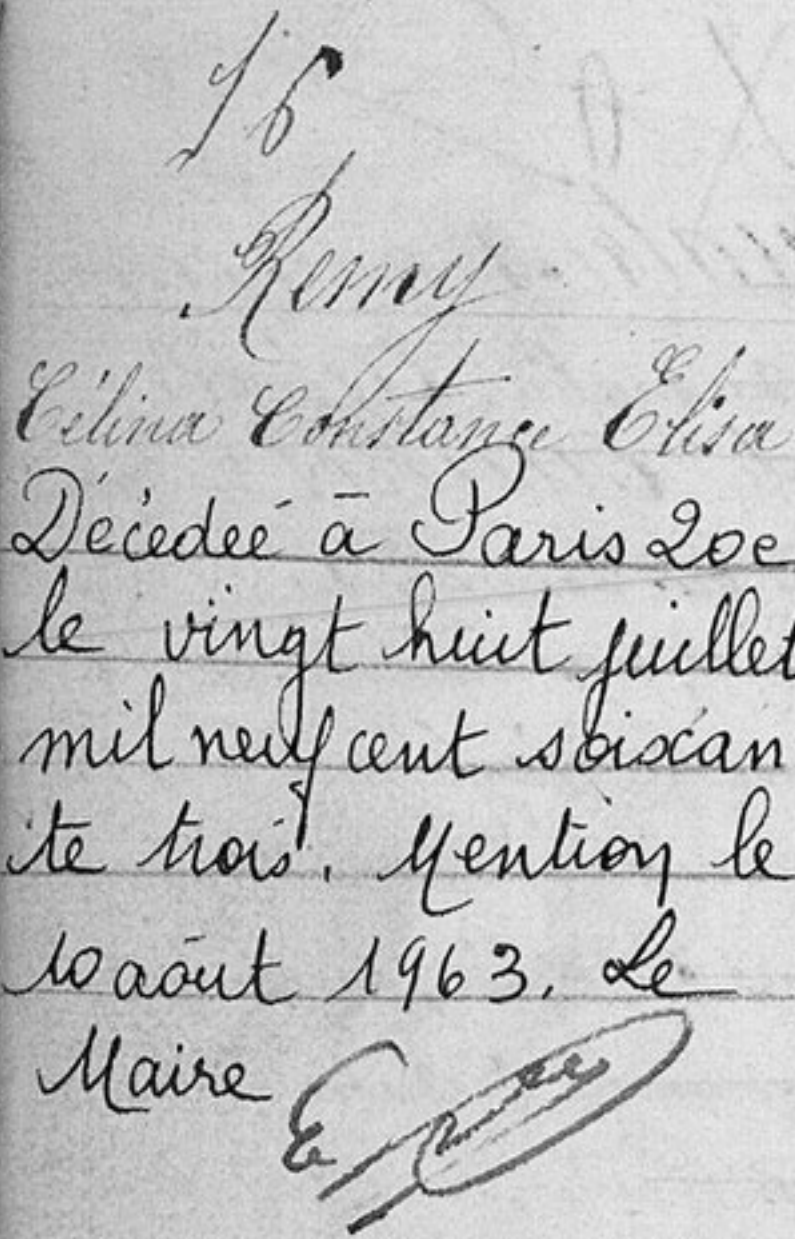 16
Remy
Célina Constance Elisa
Décédeé à Paris 20e
le vingt huit juillet
mil neuf cent soixan
te trois. Mention le
10 août 1963. Le
Maire